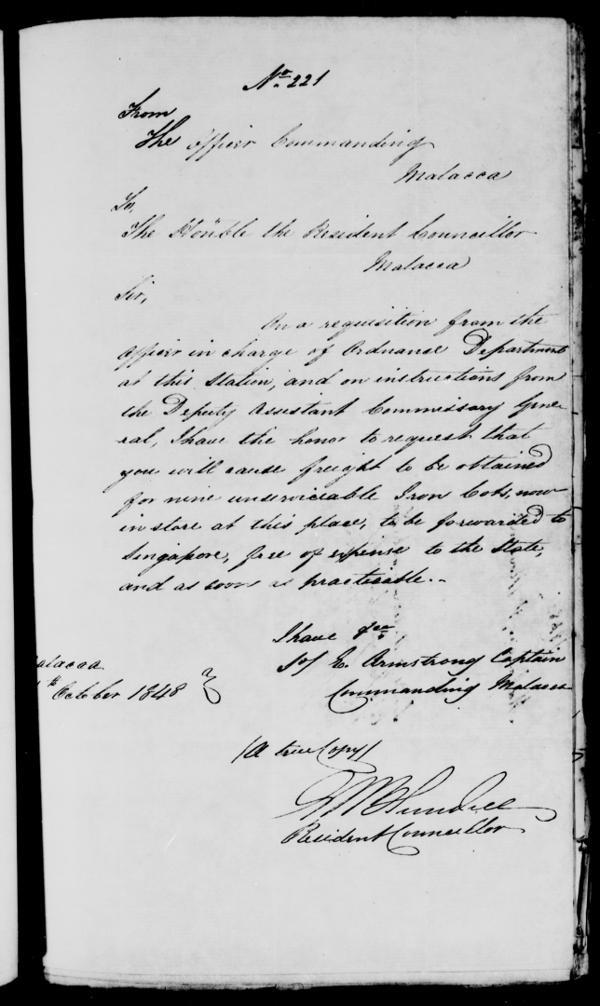 No. 221
From
The Officer Commanding
Malacca
To,
The Hon'ble the Resident Councillor
Malacca
Sir,
On a requisition from the
Officer in charge of Ordnance Department
at this station, and on instructions from
the Deputy Assistant Commissary Gene-
ral, I have the honor to request that
you will cause freight to be obtained
for nine unserviceable Iron Cots, now
in store at this place, to be forwarded to
Singapore, free of expense to the State,
and as soon as practicable.-
I have &ca.
Malacca
October 1848
E. Armstrong Captain
Commanding Malacca
(A true Copy)
Resident Councillor